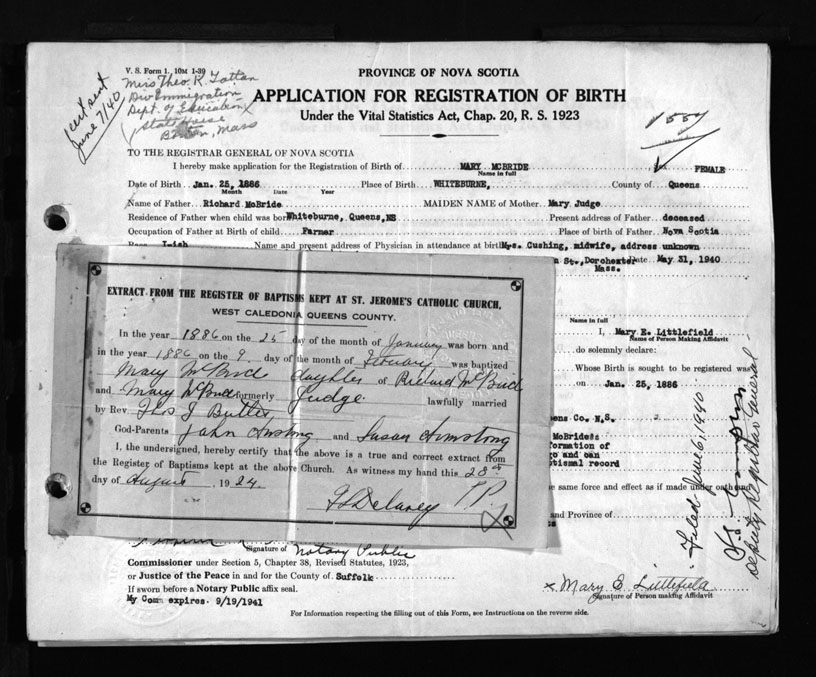 V. S. Form 1. 10M 1-39
Miss Theo. R.
Div Immigration
Dept. of Education
State House
Boston, Mass
cert sent
June 7/40
PROVINCE OF NOVA SCOTIA
APPLICATION FOR REGISTRATION OF BIRTH
Under the Vital Statistics Act, Chap. 20, R. S. 1923
TO THE REGISTRAR GENERAL OF NOVA SCOTIA
I hereby make application for the Registration of Birth of MARY MCBRIDE FEMALE
Name in full
Date of Birth Jan. 25, 1886 Place of Birth WHITEBURNE, County of Queens
Month Date Year
Name of Father Richard McBride MAIDEN NAME of Mother Mary Judge
Residence of Father when child was born Whiteburne, Queens, NS Present address of Father deceased
Occupation of Father at Birth of child Farmer Place of birth of Father Nova Scotia
Name and present address of Physician in attendance at birth Mrs. Cushing, midwife, address unknown
St., Dorchester Date May 31, 1940
Mass.
EXTRACT FROM THE REGISTER OF BAPTISMS KEPT AT ST. JEROME'S CATHOLIC CHURCH,
WEST CALEDONIA QUEENS COUNTY.
In the year 1886 on the 25 day of the month of January was born and
in the year 1886 on the 9 day of the month of February was baptized
Mary McBride daughter of Richard McBride
and Mary McBride formerly Judge lawfully married
by Rev. Thos J Butler
God-Parents John Armstrong and Susan Armstrong
I, the undersigned, hereby certify that the above is a true and correct extract from
the Register of Baptisms kept at the above Church. As witness my hand this 28th
day of August, 1924
Delaney P.P.
Name in full
I, Mary E. Littlefield
Name of Person Making Affidavit
do solemnly declare:
Whose Birth is sought to be registered was
on Jan. 25, 1886
Co. N.S.
McBride
formation of
and can
ptismal record
same force and effect as if made under oath and
and Province of
Filed June 6, 1940
Deputy Registrar General
Signature of Notary Public
Commissioner under Section 5, Chapter 38, Revised Statutes, 1923,
or Justice of the Peace in and for the County of Suffolk
If sworn before a Notary Public affix seal.
My Com expires. 9/19/1941
x Mary E Littlefield
Signature of Person making Affidavit
For Information respecting the filling out of this Form, see Instructions on the reverse side.